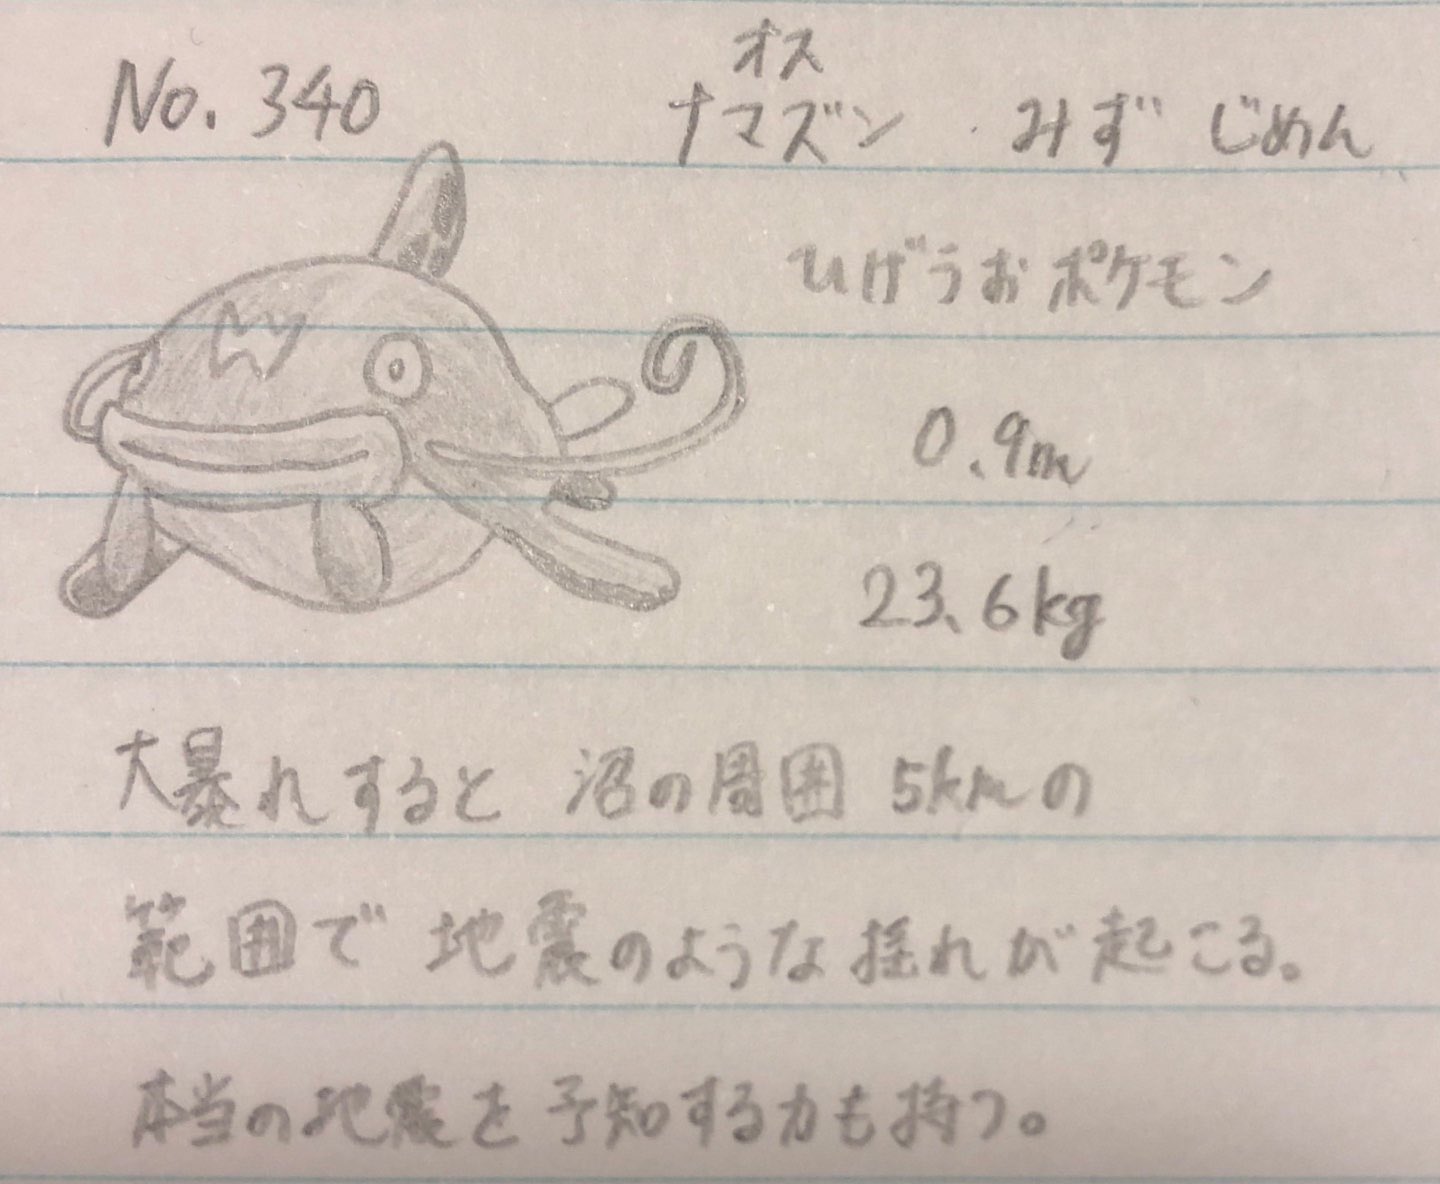 No. 340
オス
ナマズン みず じめん
ひげうおポケモン
0.9m
23.6kg
大暴れすると 沼の周囲 5kmの
範囲で 地震のような揺れが起こる。
本当の地震を予知する力も持つ。